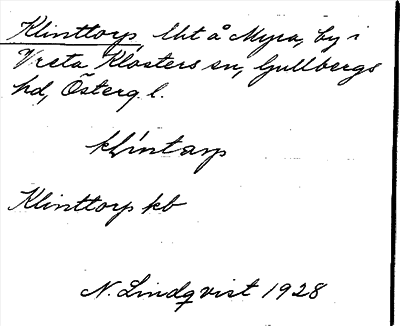 Klinttorp, lht å Myra, by i
Vreta Klosters sn, Gullbergs
hd, Österg. l.
Klinttorp kb
N. Lindqvist 1928